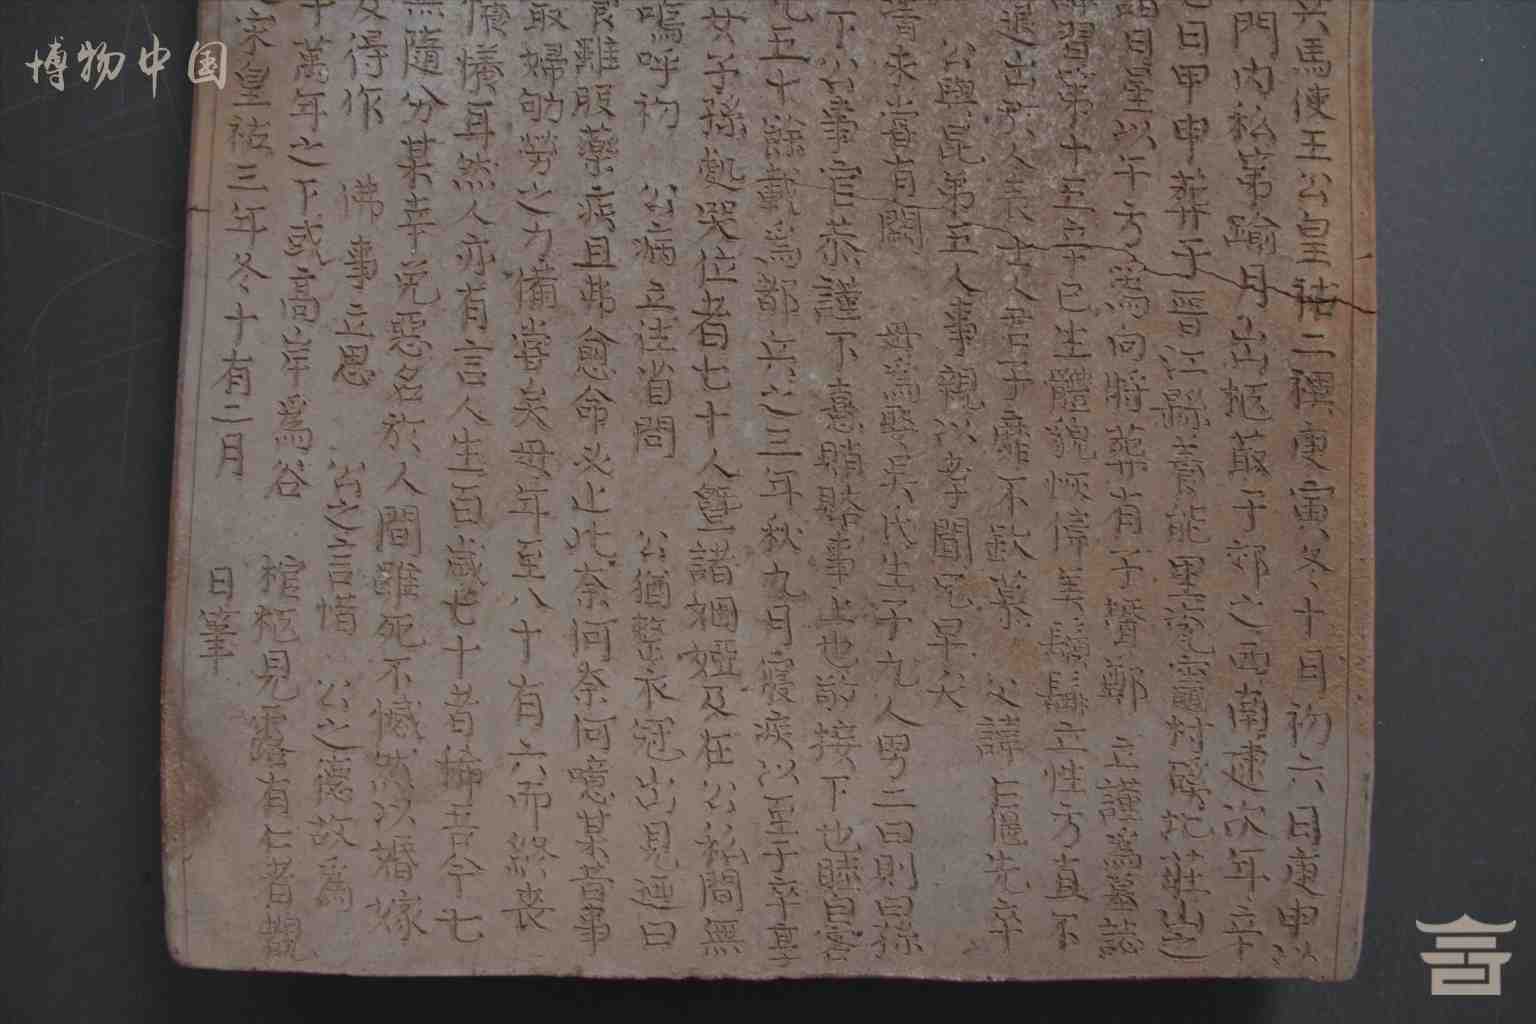 博物中国
兵馬使王公皇祐二禩庚寅冬十月初六日庚申以
門內私第踰月出柩菆于郊之西南建次年辛
日甲申葬于晉江縣
日皇以千方為向將葬有子壻鄭 立謹為墓誌
習第十五辛巳生體貌恢偉美鬚髯立性方直不
進出於人表士人君子靡不欽慕 父諱仁偃先卒
公與昆弟五人事親以孝聞兄早亡
嘗來當有闕 母為嫛吳氏生子九人男二曰則曰孫
下公事官恭謹下憙賙賂事上也敬接下也睦自
五十餘載為都兵之三年秋九月寢疾以至于卒享
女子孫處哭位者七十人暨諸姻婭及在公私間無
嗚呼初 公病立往省問 公猶整衣冠出見延曰
雖服藥病且弗愈命必止此奈何奈何噫某昔事
取婦劬勞之力備嘗矣母年至八十有六而終喪
耳然人亦有言人生百歲七十者稀吾今七
無隨分某幸免惡名於人間雖死不憾然以婚嫁
及得作 佛事立思 公之言惜 公之德故為
十萬年之下或高岸為谷 棺柩見露有仁者觀
宋皇祐三年冬十有二月 日筆